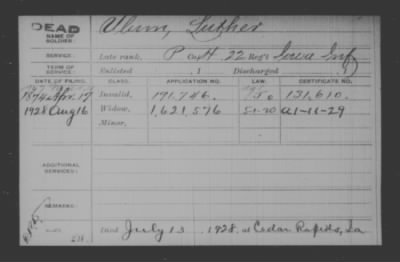 DEAD
NAME OF SOLDIER: Ulum, Luther
SERVICE: Late rank, P Co. H, 22 Reg't Iowa Inf.
TERM OF SERVICE: Enlisted , 1 Discharged , 1
DATE OF FILING. CLASS. APPLICATION NO. LAW. CERTIFICATE NO.
1874 Apr. 17 Invalid, 191,746. 131,610.
1928 Aug 16 Widow, 1,621,576 A1-11-29
Minor,
ADDITIONAL SERVICES:
REMARKS:
Died July 13, 1928, at Cedar Rapids, Ia